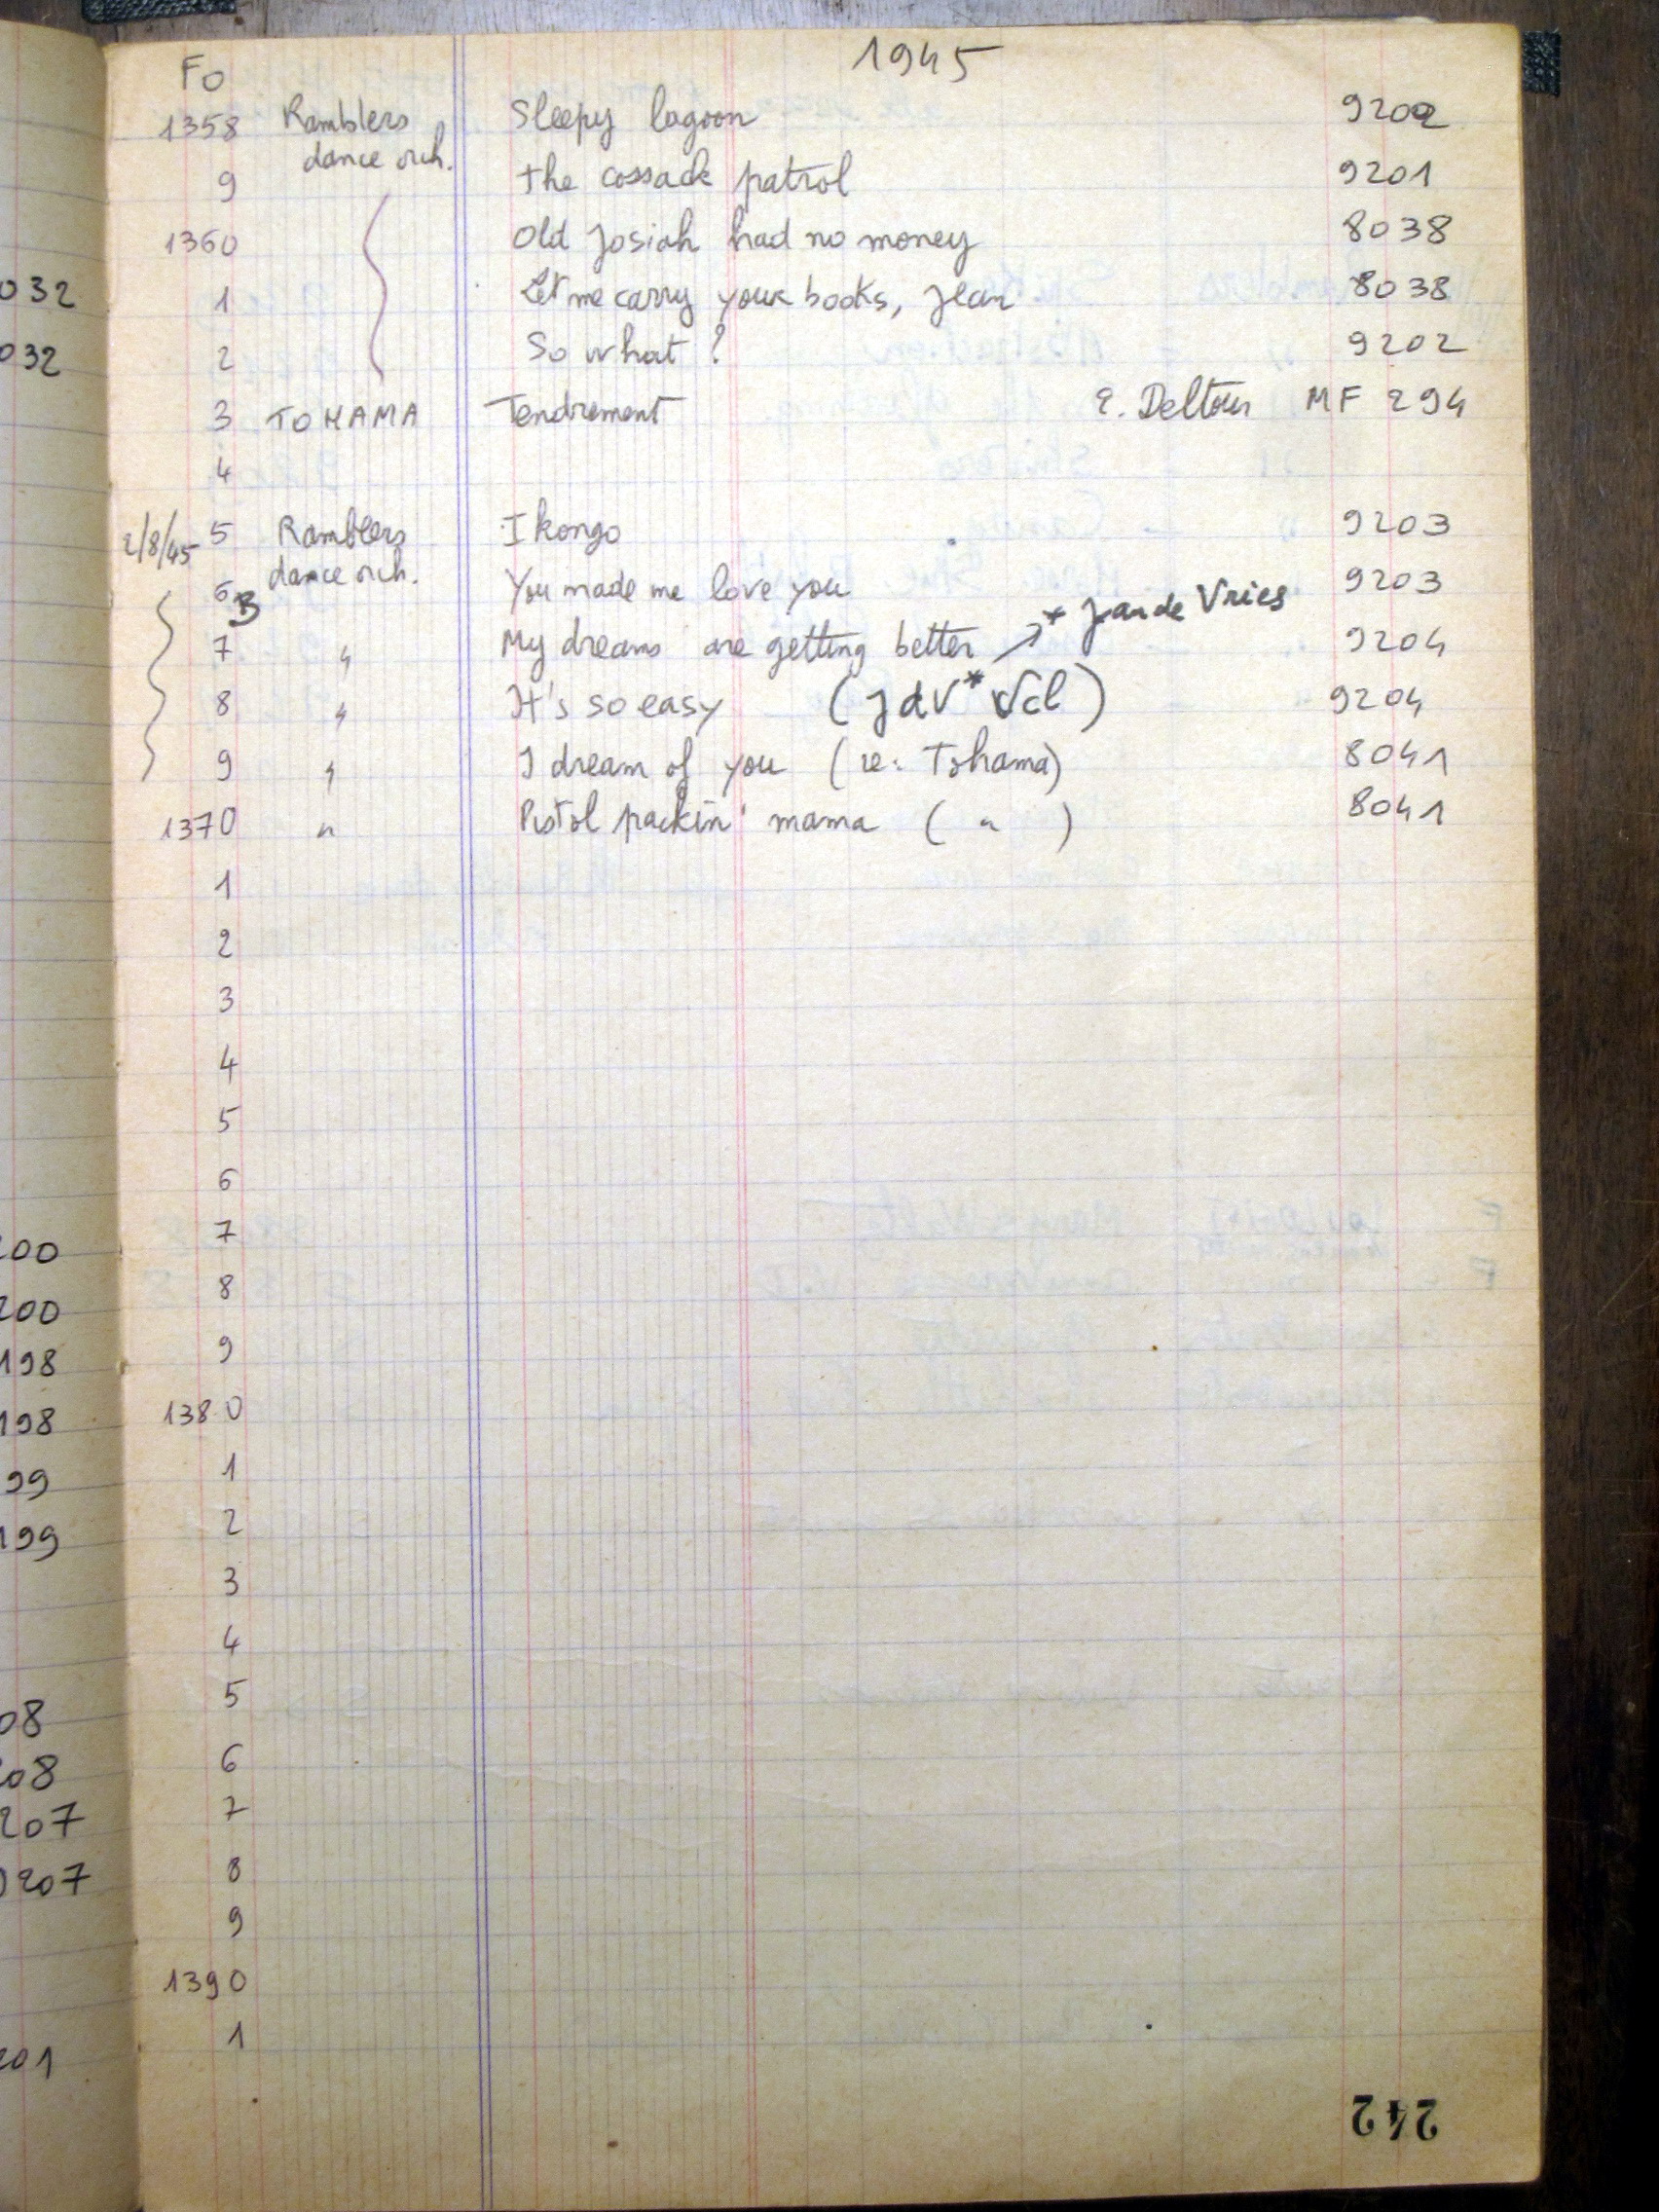 1945
Fo
1358 Ramblers dance orch. Sleepy lagoon 9202
9 the cossack patrol 9201
1360 Old Josiah had no money 8038
1 Let me carry your books, Jean 8038
2 So what ? 9202
3 TOHAMA Tendrement E. Deltour MF 294
4
2/8/45 5 Ramblers dance orch. I kongo 9203
6 B You made me love you 9203
7 " My dreams are getting better * Jan de Vries 9204
8 " It's so easy (JdV* Vcl) 9204
9 " I dream of you (re: Tohama) 8041
1370 " Pistol packin' mama ( " ) 8041
1
2
3
4
5
6
7
8
9
1380
1
2
3
4
5
6
7
8
9
1390
1
242
032
032
200
200
198
198
99
199
08
208
207
0207
201